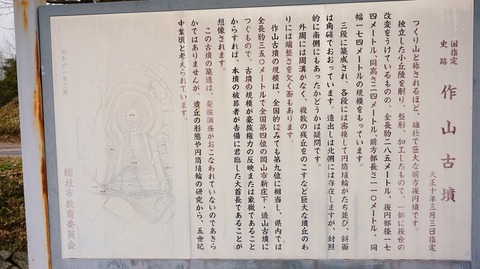 国指定
史跡 作山古墳
大正十年三月三日指定
つくり山と称されるほど、雄壮で巨大な前方後円墳です。
独立した小丘陵を削り、整形、加工したもので、一部に後世の
改変をうけているものの、全長約二八五メートル、後円部径一七
四メートル、同高さ二四メートル、前方部長さ一一〇メートル、同
幅一七四メートルの規模をもっています。
三段に築成され、各段には密接して円筒埴輪がたち並び、斜面
は角礫でおおっています。造出しは北側には存在しますが、対照
的に南側にもあったかどうかは疑問です。
外周には周溝がなく、複数の残丘をのこすなど巨大な墳丘のわ
りには端整さを欠く面もあります。
作山古墳の規模は、全国的にみても第九位に相当し、県内では
全長約三五〇メートルで全国第四位の岡山市新庄下・造山古墳に
つぐもので、古墳の規模が豪族権力の反映または象徴であること
からすれば、本墳の被葬者が吉備に君臨した大首長であることが
想像されます。
この古墳の築造は、発掘調査がおこなわれていないのであきら
かではありませんが、墳丘の形態や円筒埴輪の研究から、五世紀
中葉頃と考えられています。
総社市教育委員会